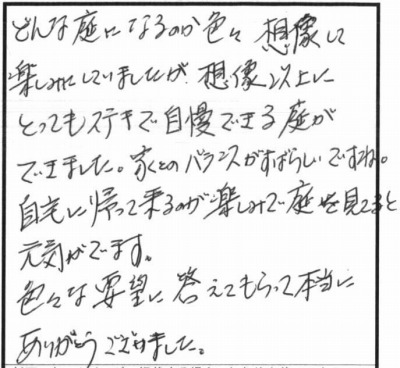 どんな庭になるのか色々想像して
楽しみにしていましたが、想像以上に
とってもステキで自慢できる庭が
できました。家とのバランスがすばらしいですね。
自宅に帰って来るのが楽しみで庭を見てると
元気がでます。
色々な要望に答えてもらって本当に
ありがとうございました。